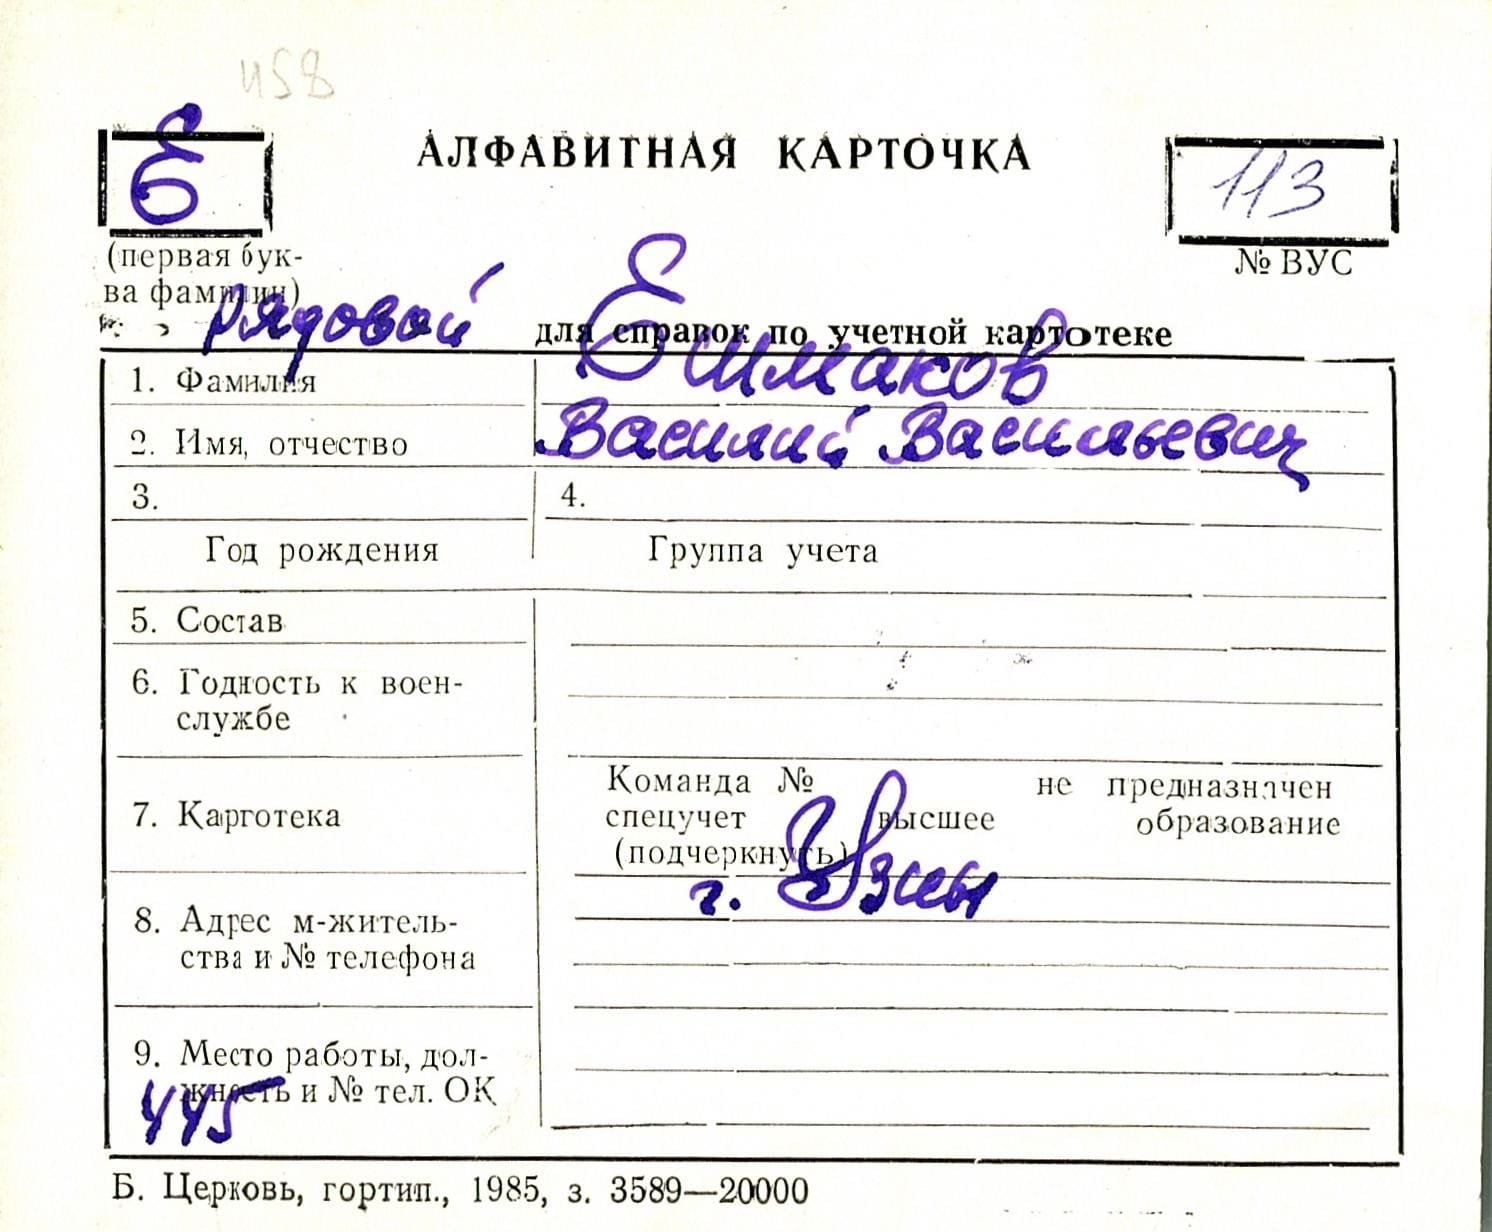 458
Е АЛФАВИТНАЯ КАРТОЧКА 113
(первая бук-
ва фамилии)
№ ВУС
рядовой для справок по учетной картотеке
1. Фамилия Ешмаков
2. Имя, отчество Василий Васильевич
3. 4.
Год рождения Группа учета
5. Состав
6. Годность к воен-
службе
7. Картотека
Команда № не предназначен
спецучет высшее образование
(подчеркнуть)
г. Узин
8. Адрес м-житель-
ства и № телефона
9. Место работы, дол-
жность и № тел. ОК
445
Б. Церковь, гортип., 1985, з. 3589—20000